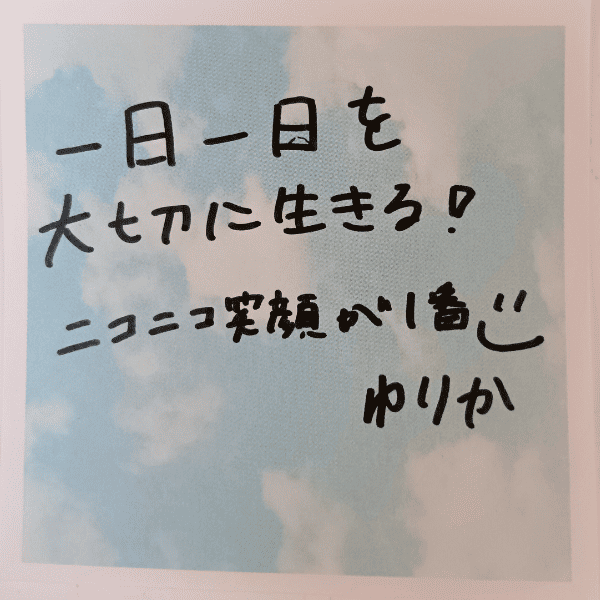 一日一日を
大切に生きる!
ニコニコ笑顔が1番
ゆりか